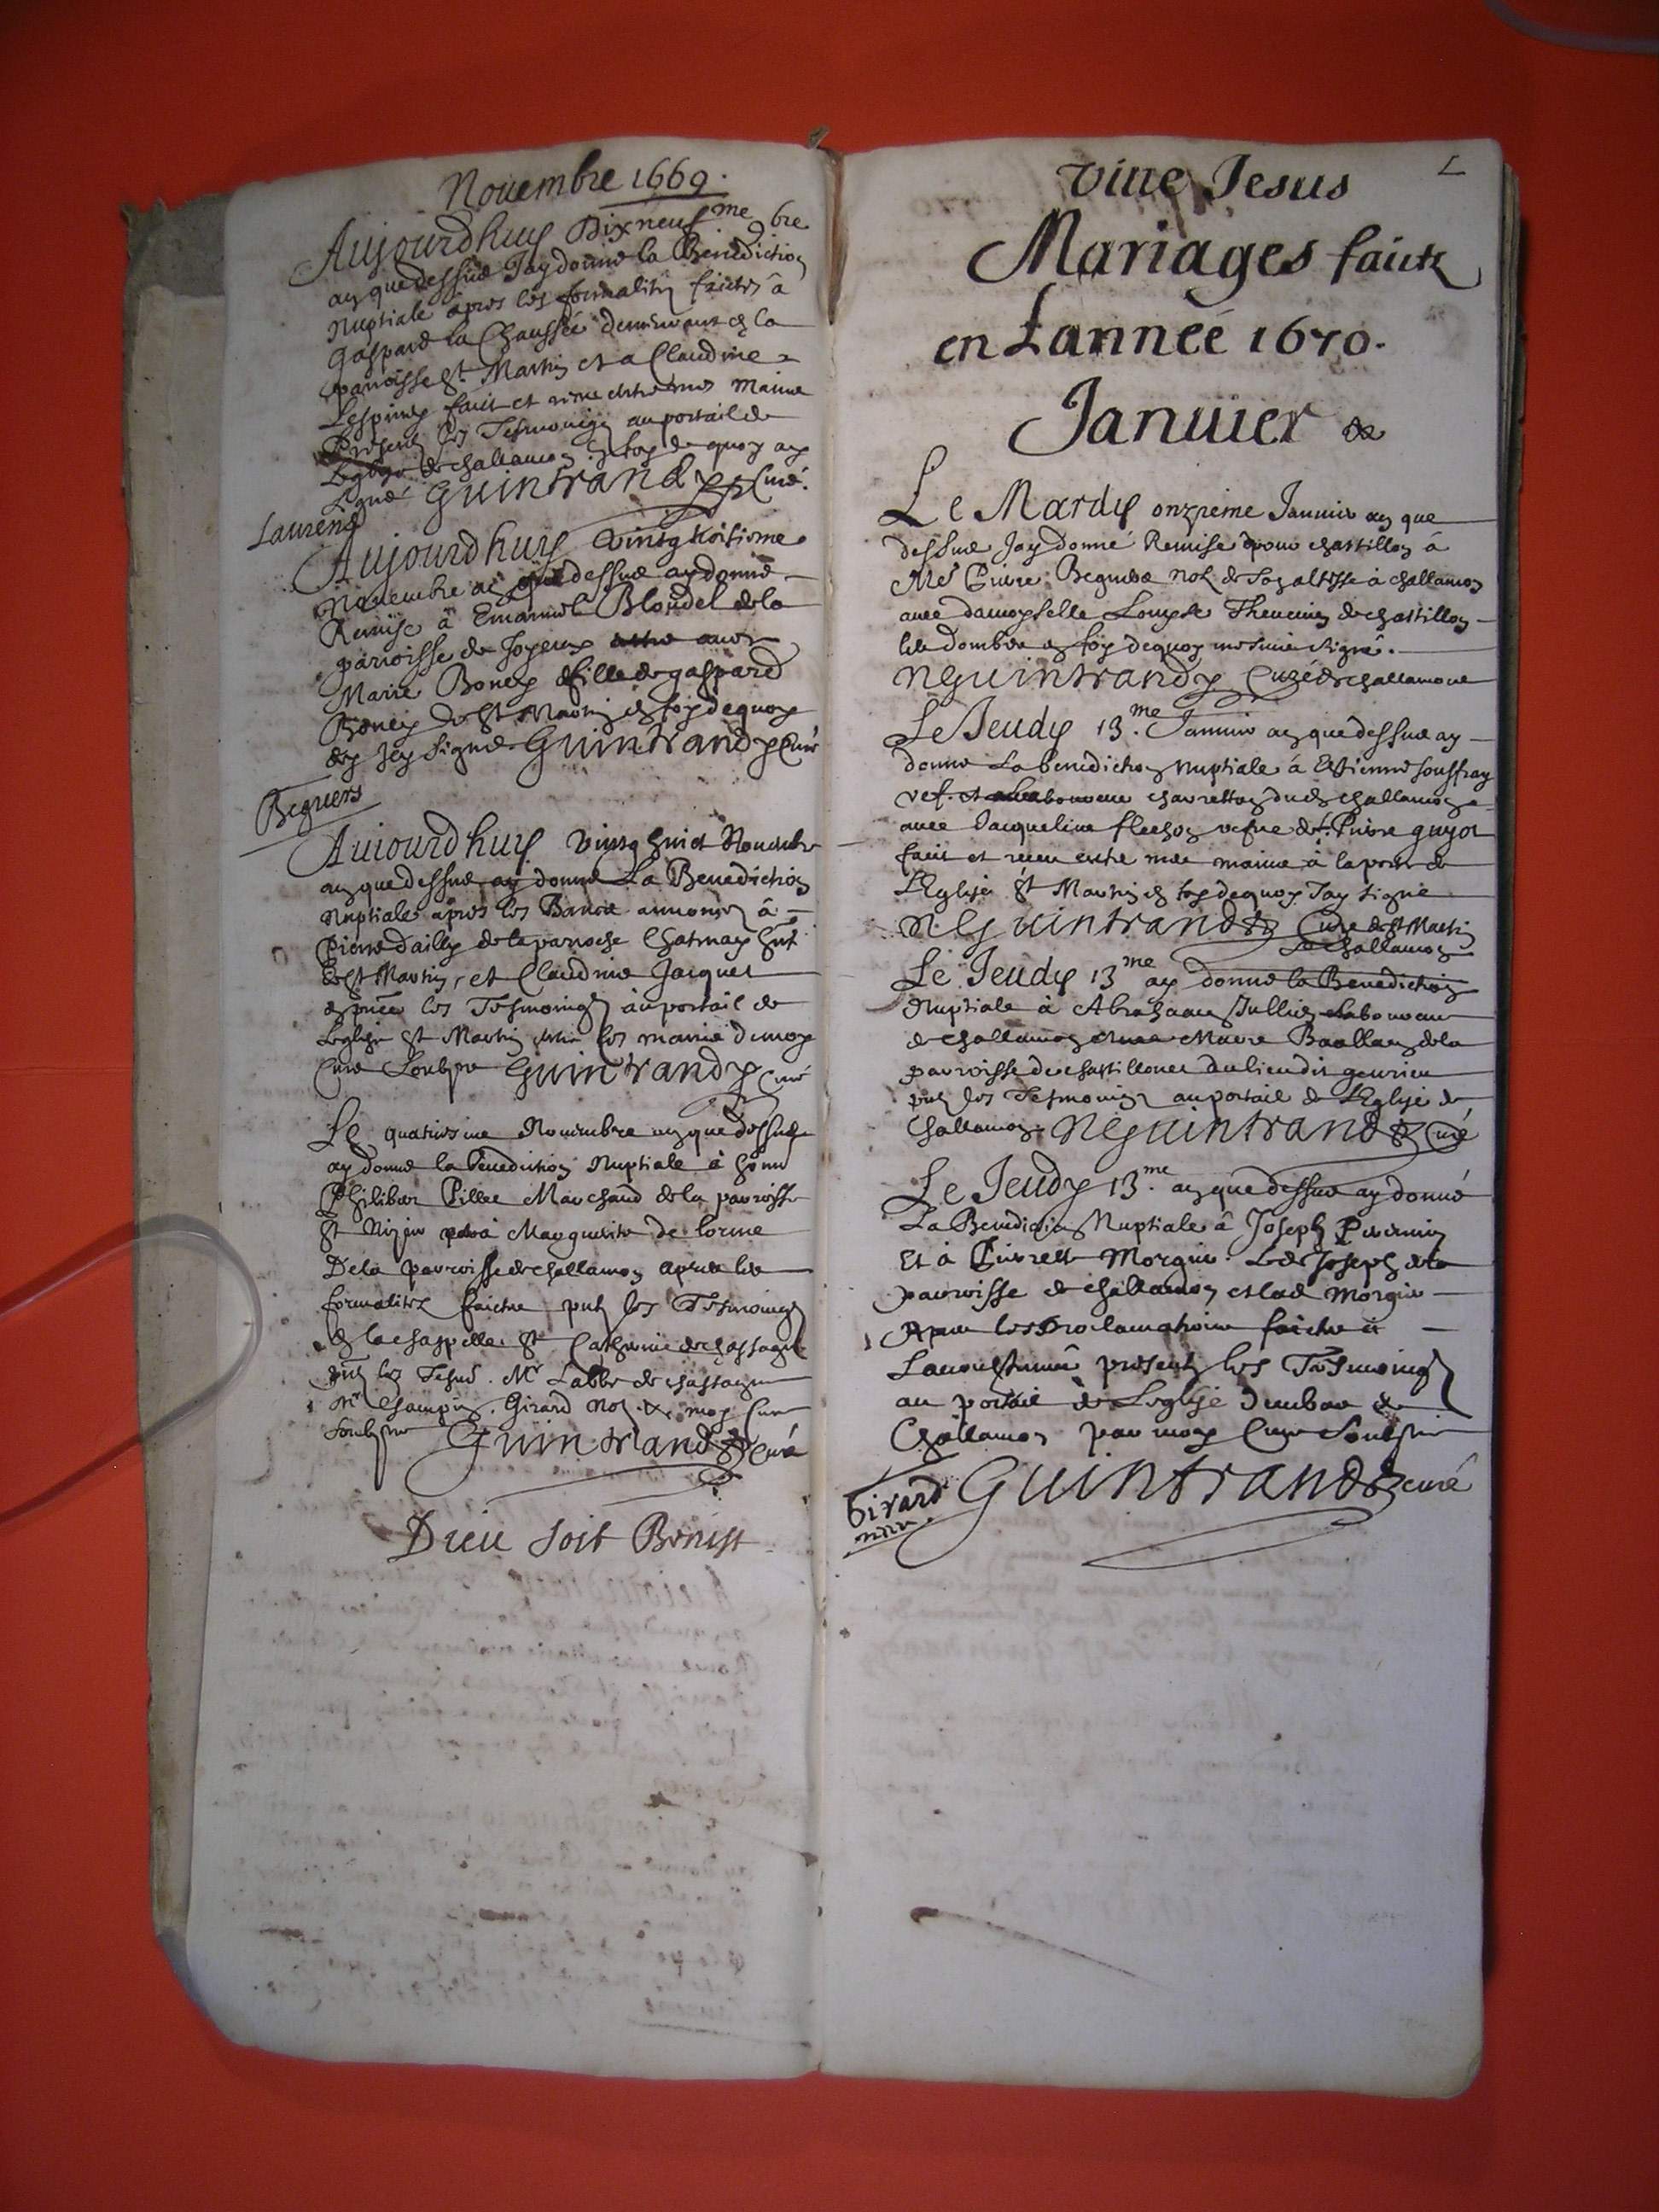 Nouembre 1669.
Aujourdhuy Dixneufme 9bre
an que dessus Jay donné la Benediction
Nuptiale apres les formalites faictes à
Gaspard la Chaussée demeurant en la
parroisse St. Martin et a Claudine
Lespiney faict et entre mes mains
les Tesmoings au portail de
Leglise de challamon en foy de quoy ay
signé Guintrandy Curé.
Laurens
Aujourdhuy vintg troisieme
Nouembre an que dessus ay donné
Remise à Emanuel Blondel de la
parroisse de Joyeux auec
Marie Boney fille de gaspard
Boney de St Martin en foy de quoy
signé Guintrandy Curé
Beguers
Auiourdhuy vintg huict Nouembre
an que dessus ay donné La Benediction
Nuptiale apres les Bancs annonces à
Pierre dailly de la parroisse Chatenay
de St Martin, et Claudine Jacquet
les Tesmoings au portail de
Leglise St Martin entre les mains de moy
Curé Soubsne Guintrandy Curé
Le quatriesme Nouembre an que dessus
ay donné la Benediction Nuptiale à honn
Philibert Pillet Marchand de la parroisse
St Nizier et à Marguerite de lorme
De la parroisse de challamon apres les
formalites faictes pnts les Tesmoings
en la chappelle St Catherine de chassagne
les Tesms. Mr Labbe de chassagne
Mr Girard not. & moy Curé
Soubsne Guintrandy curé
Dieu soit Benist
L
viue Jesus
Mariages faicts
en Lannéé 1670.
Januier
Le Mardy onzieme Januier an que
dessus Jay donné Remise pour chastillon à
Me Pierre Beguers not. de son altesse à challamon
auec damoyselle Louyse Theuenin de chastillon
les dombes en foy de quoy me suis signé.
NGuintrandy Curé de challamont
Le Jeudy 13.me Januier an que dessus ay
donné La benediction nuptiale à Estienne souffray
vef. et laboureur charretton dudt challamon
auec Jacqueline flechon vefue de f. Pierre guyot
faict et receu entre mes mains à la porte de
LEglise St Martin en foy de quoy Jay signé
N.Guintrandy Curé de St Martin
de challamon
Le Jeudy 13me ay donné la Benediction
Nuptiale à Abraham Jullien laboureur
de challamon auec Marie de la
parroisse de chastillonet au lieu dit
pnts les Tesmoings au portail de LEglise de
Challamon. NGuintrandy Curé
Le Jeudy 13.me an que dessus ay donné
La Benediction Nuptiale à Joseph
Et à Pierrette Morgin. Ledt Joseph de la
parroisse de challamon et lad Morgin
Apres les Proclamations faictes à
Lacoustumée presents les Tesmoings
au portail de Leglise Dembas de
Challamon par moy Curé Soubsne
Girard Guintrandy curé